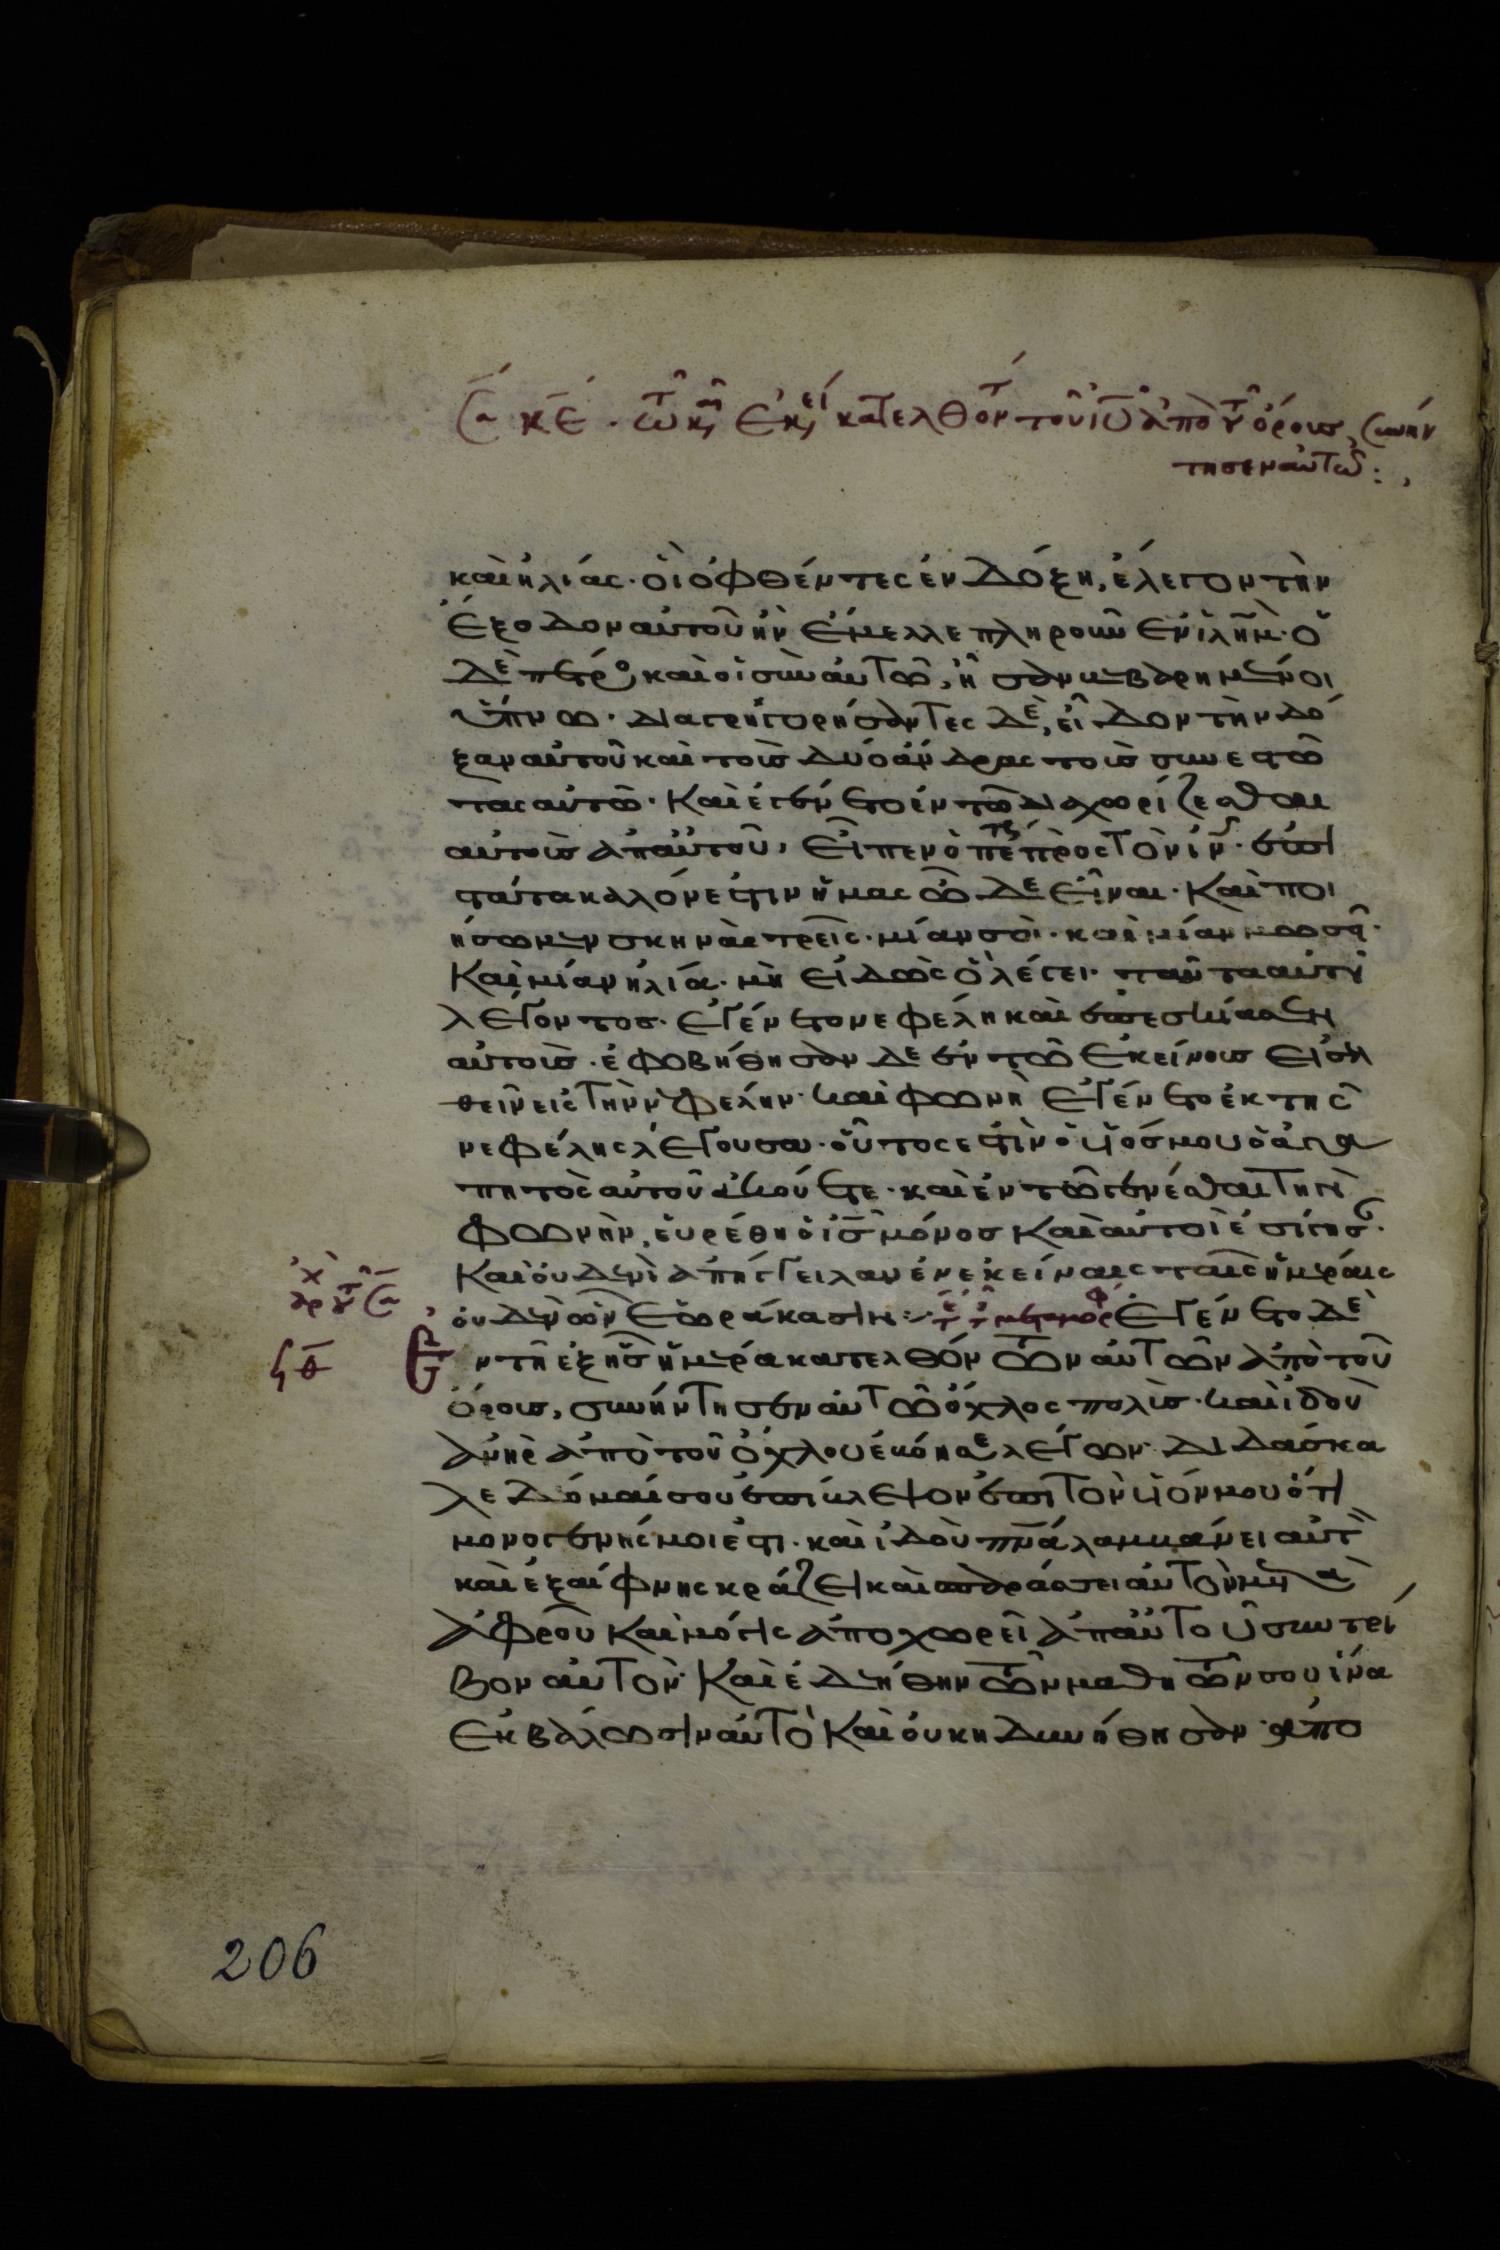 κε τω κ, εκ, κατελθόντ τοῦ ιυ ἀπὸ τ ὄρους, συνήν
τησεν αὐτῶ :,
καὶ ἠλίας · οἱ ὀφθέντες ἐν δόξη, ἔλεγον τὴν
ἔξοδον αὐτοῦ ἣν ἔμελλε πληροῦν ἐν ἱλημ · ὁ
δὲ πετρο καὶ οἱ σὺν αὐτῶ, ἦσαν βεβαρημένοι
ὕπνω · διαγρηγορήσαντες δὲ, εἶδον τὴν δό
ξαν αὐτοῦ καὶ τοὺς δύο ἄνδρας τοὺς συνεστῶ
τας αὐτῶ · Καὶ ἐγένετο ἐν τῶ διαχωρίζεσθαι
αὐτοὺς ἀπ αὐτοῦ, εἶπεν ὁ πετρ πρὸς τὸν ιν · ἐπι
στάτα καλόν ἐστιν ἡμᾶς ὧδε εἶναι · Καὶ ποι
ήσωμεν σκηνὰς τρεῖς · μίαν σοὶ · καὶ μίαν μωσῆ ·
Καὶ μίαν ἠλία · μὴ εἰδὼς ὃ λέγει · ταῦτα αὐτοῦ
λέγοντος · ἐγένετο νεφέλη καὶ ἐπεσκίασεν
αὐτούς · ἐφοβήθησαν δὲ ἐν τῶ ἐκείνους εἰσελ
θεῖν εἰς τὴν νεφέλην · καὶ φωνὴ ἐγένετο ἐκ τῆς
νεφέλης λέγουσα · οὗτός ἐστιν ὁ υἱός μου ὁ ἀγα
πητὸς αὐτοῦ ἀκούετε · καὶ ἐν τῶ γενέσθαι τὴν
φωνὴν, εὑρέθη ὁ ις μόνος Καὶ αὐτοὶ ἐσίγησ ·
Καὶ οὐδενὶ ἀπήγγειλαν ἐν ἐκείναις ταῖς ἡμέραις
οὐδὲν ὧν ἑωράκασιν :· Ἐγένετο δὲ
ἐν τῆ ἑξῆς ἡμέρα κατελθόντων αὐτῶν ἀπὸ τοῦ
ὄρους, συνήντησεν αὐτῶ ὄχλος πολὺς · καὶ ἰδοὺ
ἀνὴρ ἀπὸ τοῦ ὄχλου ἐβόησε λέγων · διδάσκα
λε δέομαί σου ἐπίβλεψον ἐπὶ τὸν υἱόν μου ὅτι
μονογενής μοι ἐστι · καὶ ἰδοὺ πνα λαμβάνει αὐτ
καὶ ἐξαίφνης κράζει καὶ σπαράσσει αὐτὸν μετὰ
ἀφροῦ Καὶ μόγις ἀποχωρεῖ ἀπ αὐτοῦ συντρί
βον αὐτὸν · Καὶ ἐδεήθην τῶν μαθητῶν σου ἵνα
ἐκβάλωσιν αὐτὸ Καὶ οὐκ ἠδυνήθησαν · ἀπο
206